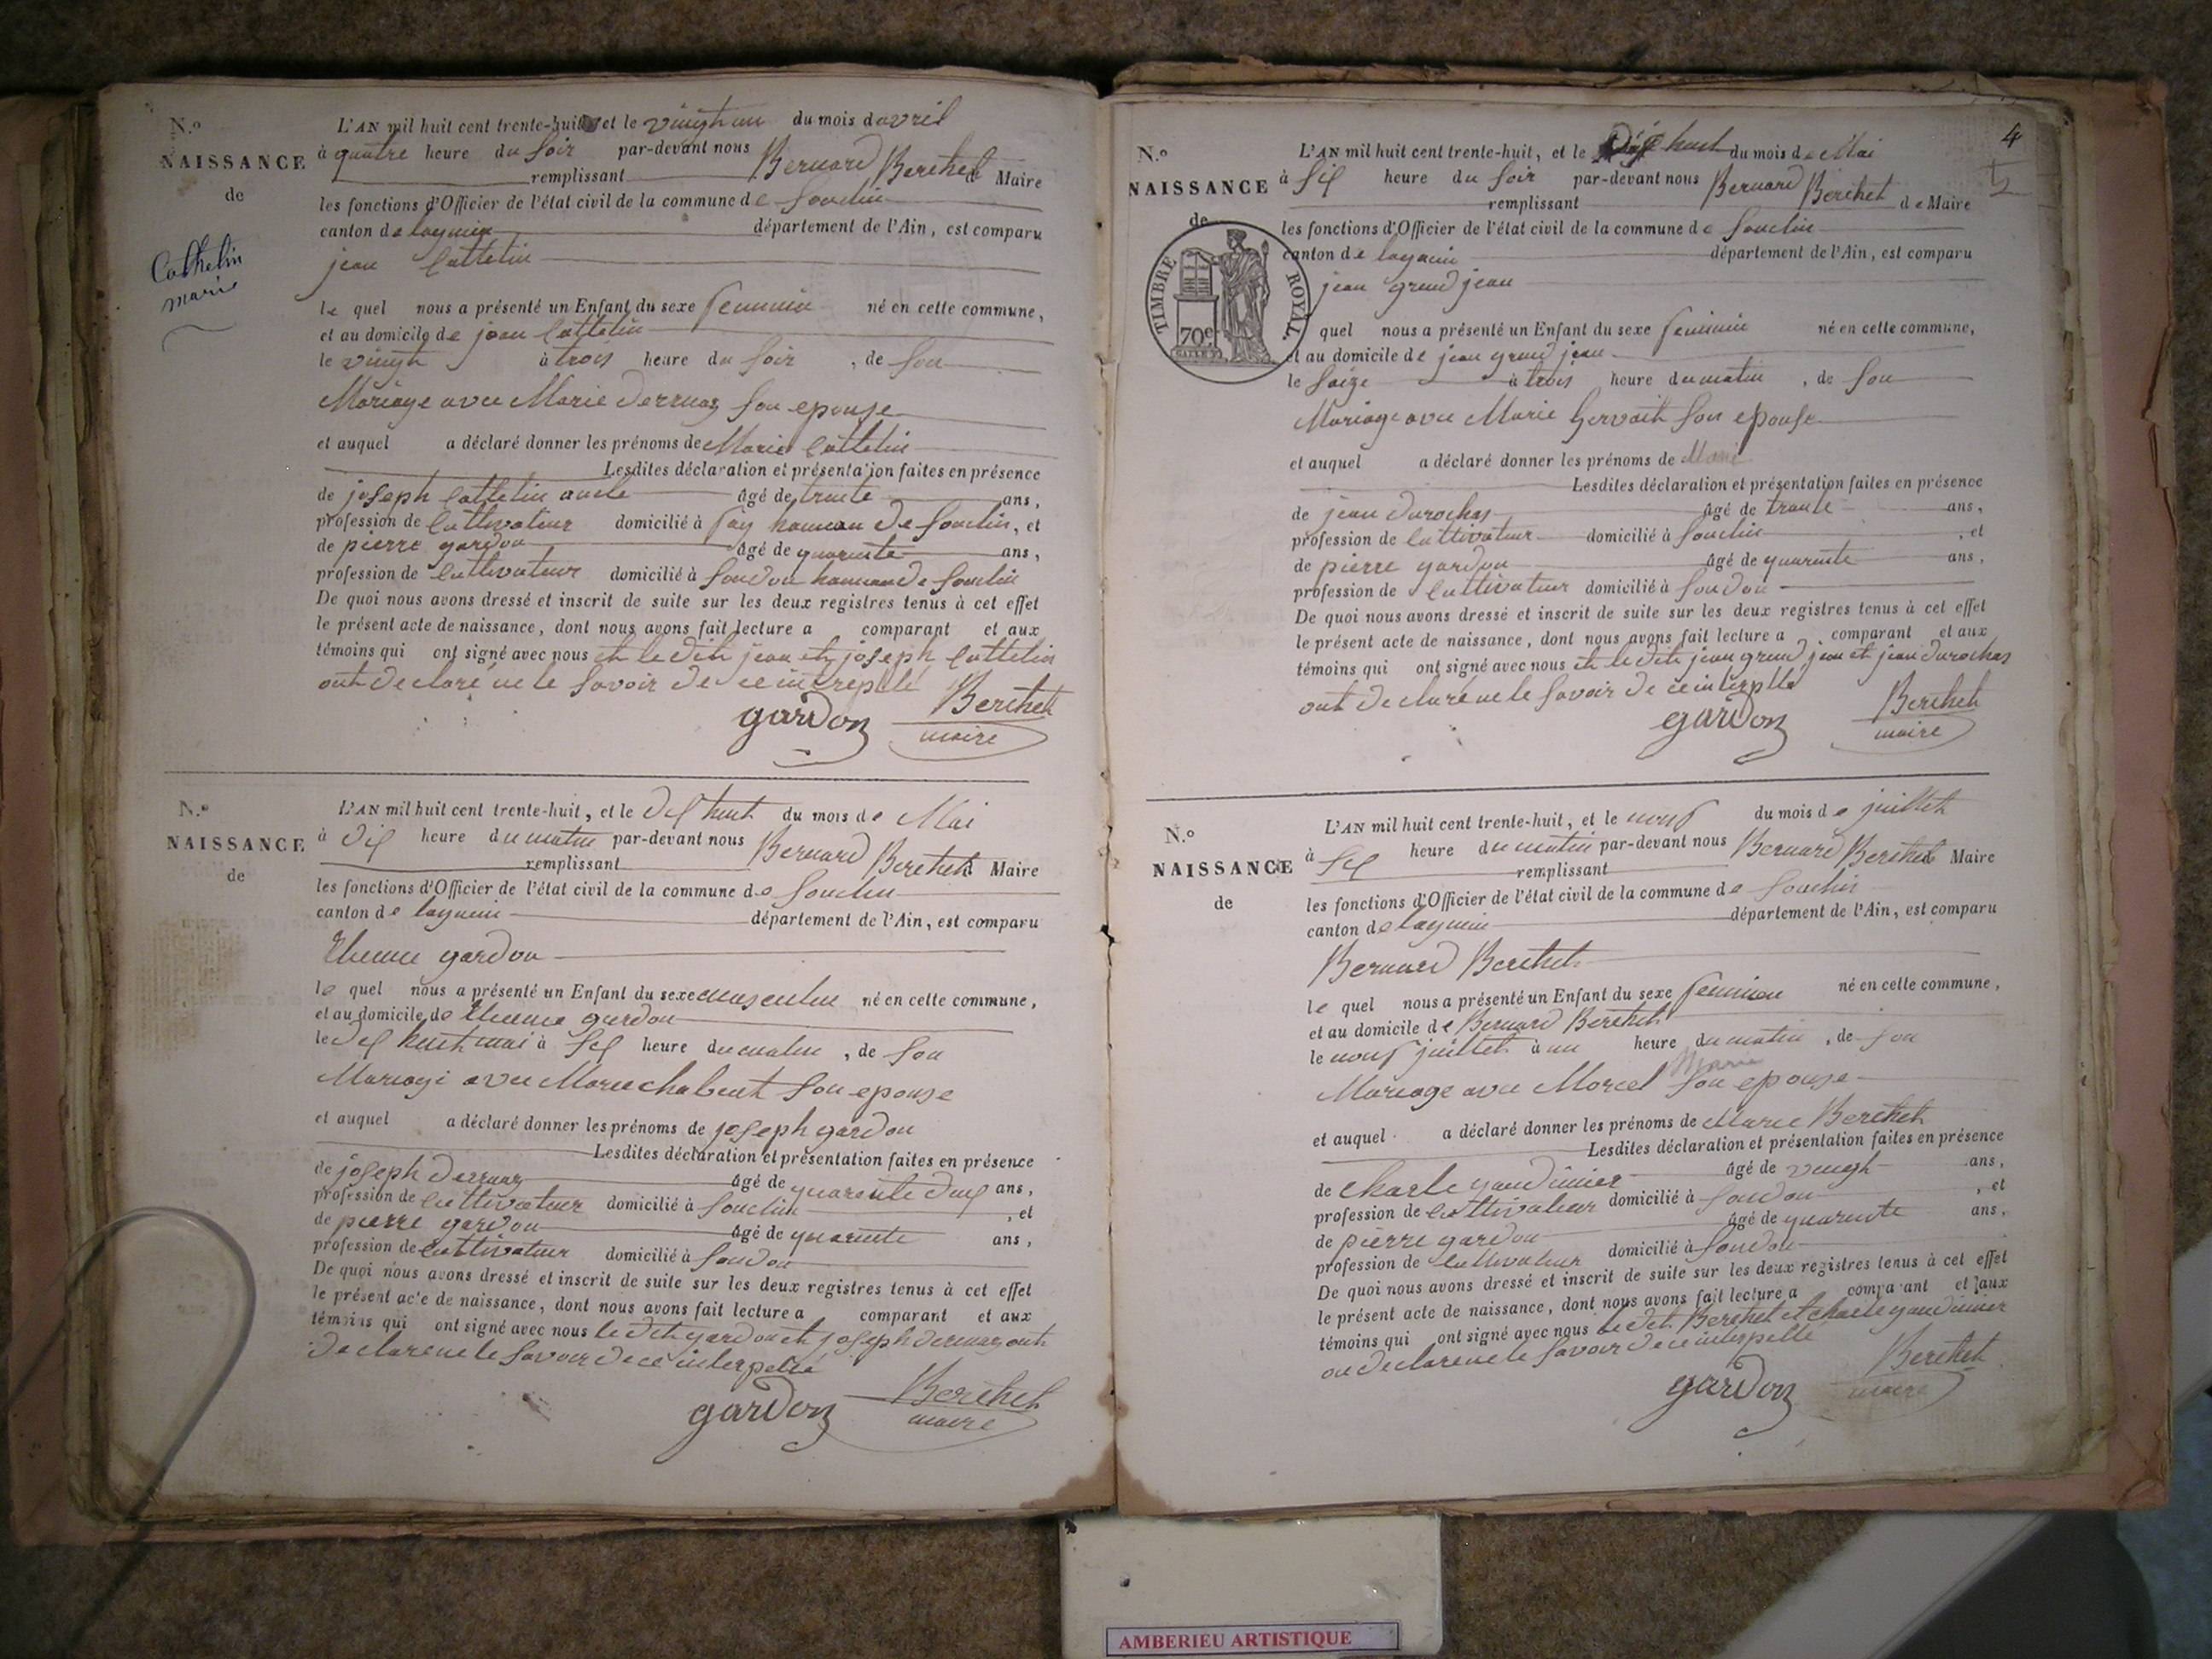 N.º
NAISSANCE
de
Cathelin
marie
L'AN mil huit cent trente-huit, et le vingt un du mois d avril
à quatre heure du soir par-devant nous Bernard Berthet
remplissant de Maire
les fonctions d'Officier de l'état civil de la commune de Souclin
canton de lagnieu département de l'Ain, est comparu
jean Cattelin
le quel nous a présenté un Enfant du sexe feminin né en cette commune,
et au domicile de jean Cattelin
le vingt à trois heure du soir, de son
Mariage avec Marie Derruaz son epouse
et auquel a déclaré donner les prénoms de Marie Cattelin
Lesdites déclaration et présentation faites en présence
de joseph Cattelin oncle âgé de trente ans,
profession de Cultivateur domicilié à fay hameau de Souclin, et
de pierre gardon âgé de quarente ans,
profession de Cultivateur domicilié à Soudon hameau de Souclin
De quoi nous avons dressé et inscrit de suite sur les deux registres tenus à cet effet
le présent acte de naissance, dont nous avons fait lecture a comparant et aux
témoins qui ont signé avec nous et le dit jean et joseph Cattelin
ont declaré ne le savoir de ce interpellé
gardon Berthet
maire
N.º
NAISSANCE
de
L'AN mil huit cent trente-huit, et le dix huit du mois de Mai
à dix heure du matin par-devant nous Bernard Berthet
remplissant Maire
les fonctions d'Officier de l'état civil de la commune de Souclin
canton de lagnieu département de l'Ain, est comparu
Etienne gardon
le quel nous a présenté un Enfant du sexe masculin né en cette commune,
et au domicile de Etienne gardon
le dix huit mai à six heure du matin, de son
Mariage avec Marie chabeut son epouse
et auquel a déclaré donner les prénoms de joseph gardon
Lesdites déclaration et présentation faites en présence
de joseph Derruaz âgé de quarente deux ans,
profession de Cultivateur domicilié à Souclin, et
de pierre gardon âgé de quarente ans,
profession de Cultivateur domicilié à Soudon
De quoi nous avons dressé et inscrit de suite sur les deux registres tenus à cet effet
le présent acte de naissance, dont nous avons fait lecture a comparant et aux
témoins qui ont signé avec nous le dit gardon et joseph derruaz ont
declare ne le savoir de ce interpellé
gardon Berthet
maire
4
N.º
NAISSANCE
de
TIMBRE ROYAL
70c
L'AN mil huit cent trente-huit, et le dix huit du mois de Mai
à six heure du soir par-devant nous Bernard Berthet
remplissant de Maire
les fonctions d'Officier de l'état civil de la commune de Souclin
canton de lagnieu département de l'Ain, est comparu
jean grand jean
quel nous a présenté un Enfant du sexe feminin né en cette commune,
et au domicile de jean grand jean
le saize à trois heure du matin, de son
Mariage avec Marie Gervait son epouse
et auquel a déclaré donner les prénoms de Marie
Lesdites déclaration et présentation faites en présence
de jean durochas âgé de trante ans,
profession de Cultivateur domicilié à Souclin, et
de pierre gardon âgé de quarente ans,
profession de Cultivateur domicilié à Soudon
De quoi nous avons dressé et inscrit de suite sur les deux registres tenus à cet effet
le présent acte de naissance, dont nous avons fait lecture a comparant et aux
témoins qui ont signé avec nous et le dit jean grand jean et jean durochas
ont declaré ne le savoir de ce interpellé
gardon Berthet
maire
N.º
NAISSANCE
de
L'AN mil huit cent trente-huit, et le neuf du mois de juillet
à six heure du matin par-devant nous Bernard Berthet
remplissant Maire
les fonctions d'Officier de l'état civil de la commune de Souclin
canton de lagnieu département de l'Ain, est comparu
Bernard Berthet
le quel nous a présenté un Enfant du sexe feminin né en cette commune,
et au domicile de Bernard Berthet
le neuf juillet à un heure du matin, de son
Marie
Mariage avec Morcel son epouse
et auquel a déclaré donner les prénoms de Marie Berthet
Lesdites déclaration et présentation faites en présence
de charle gaudinier âgé de vingt ans,
profession de Cultivateur domicilié à Soudon, et
de pierre gardon âgé de quarente ans,
profession de Cultivateur domicilié à Soudon
De quoi nous avons dressé et inscrit de suite sur les deux registres tenus à cet effet
le présent acte de naissance, dont nous avons fait lecture a comparant et aux
témoins qui ont signé avec nous le dit Berthet et charle gaudinier
on declare ne le savoir de ce interpellé
gardon Berthet
maire
AMBERIEU ARTISTIQUE